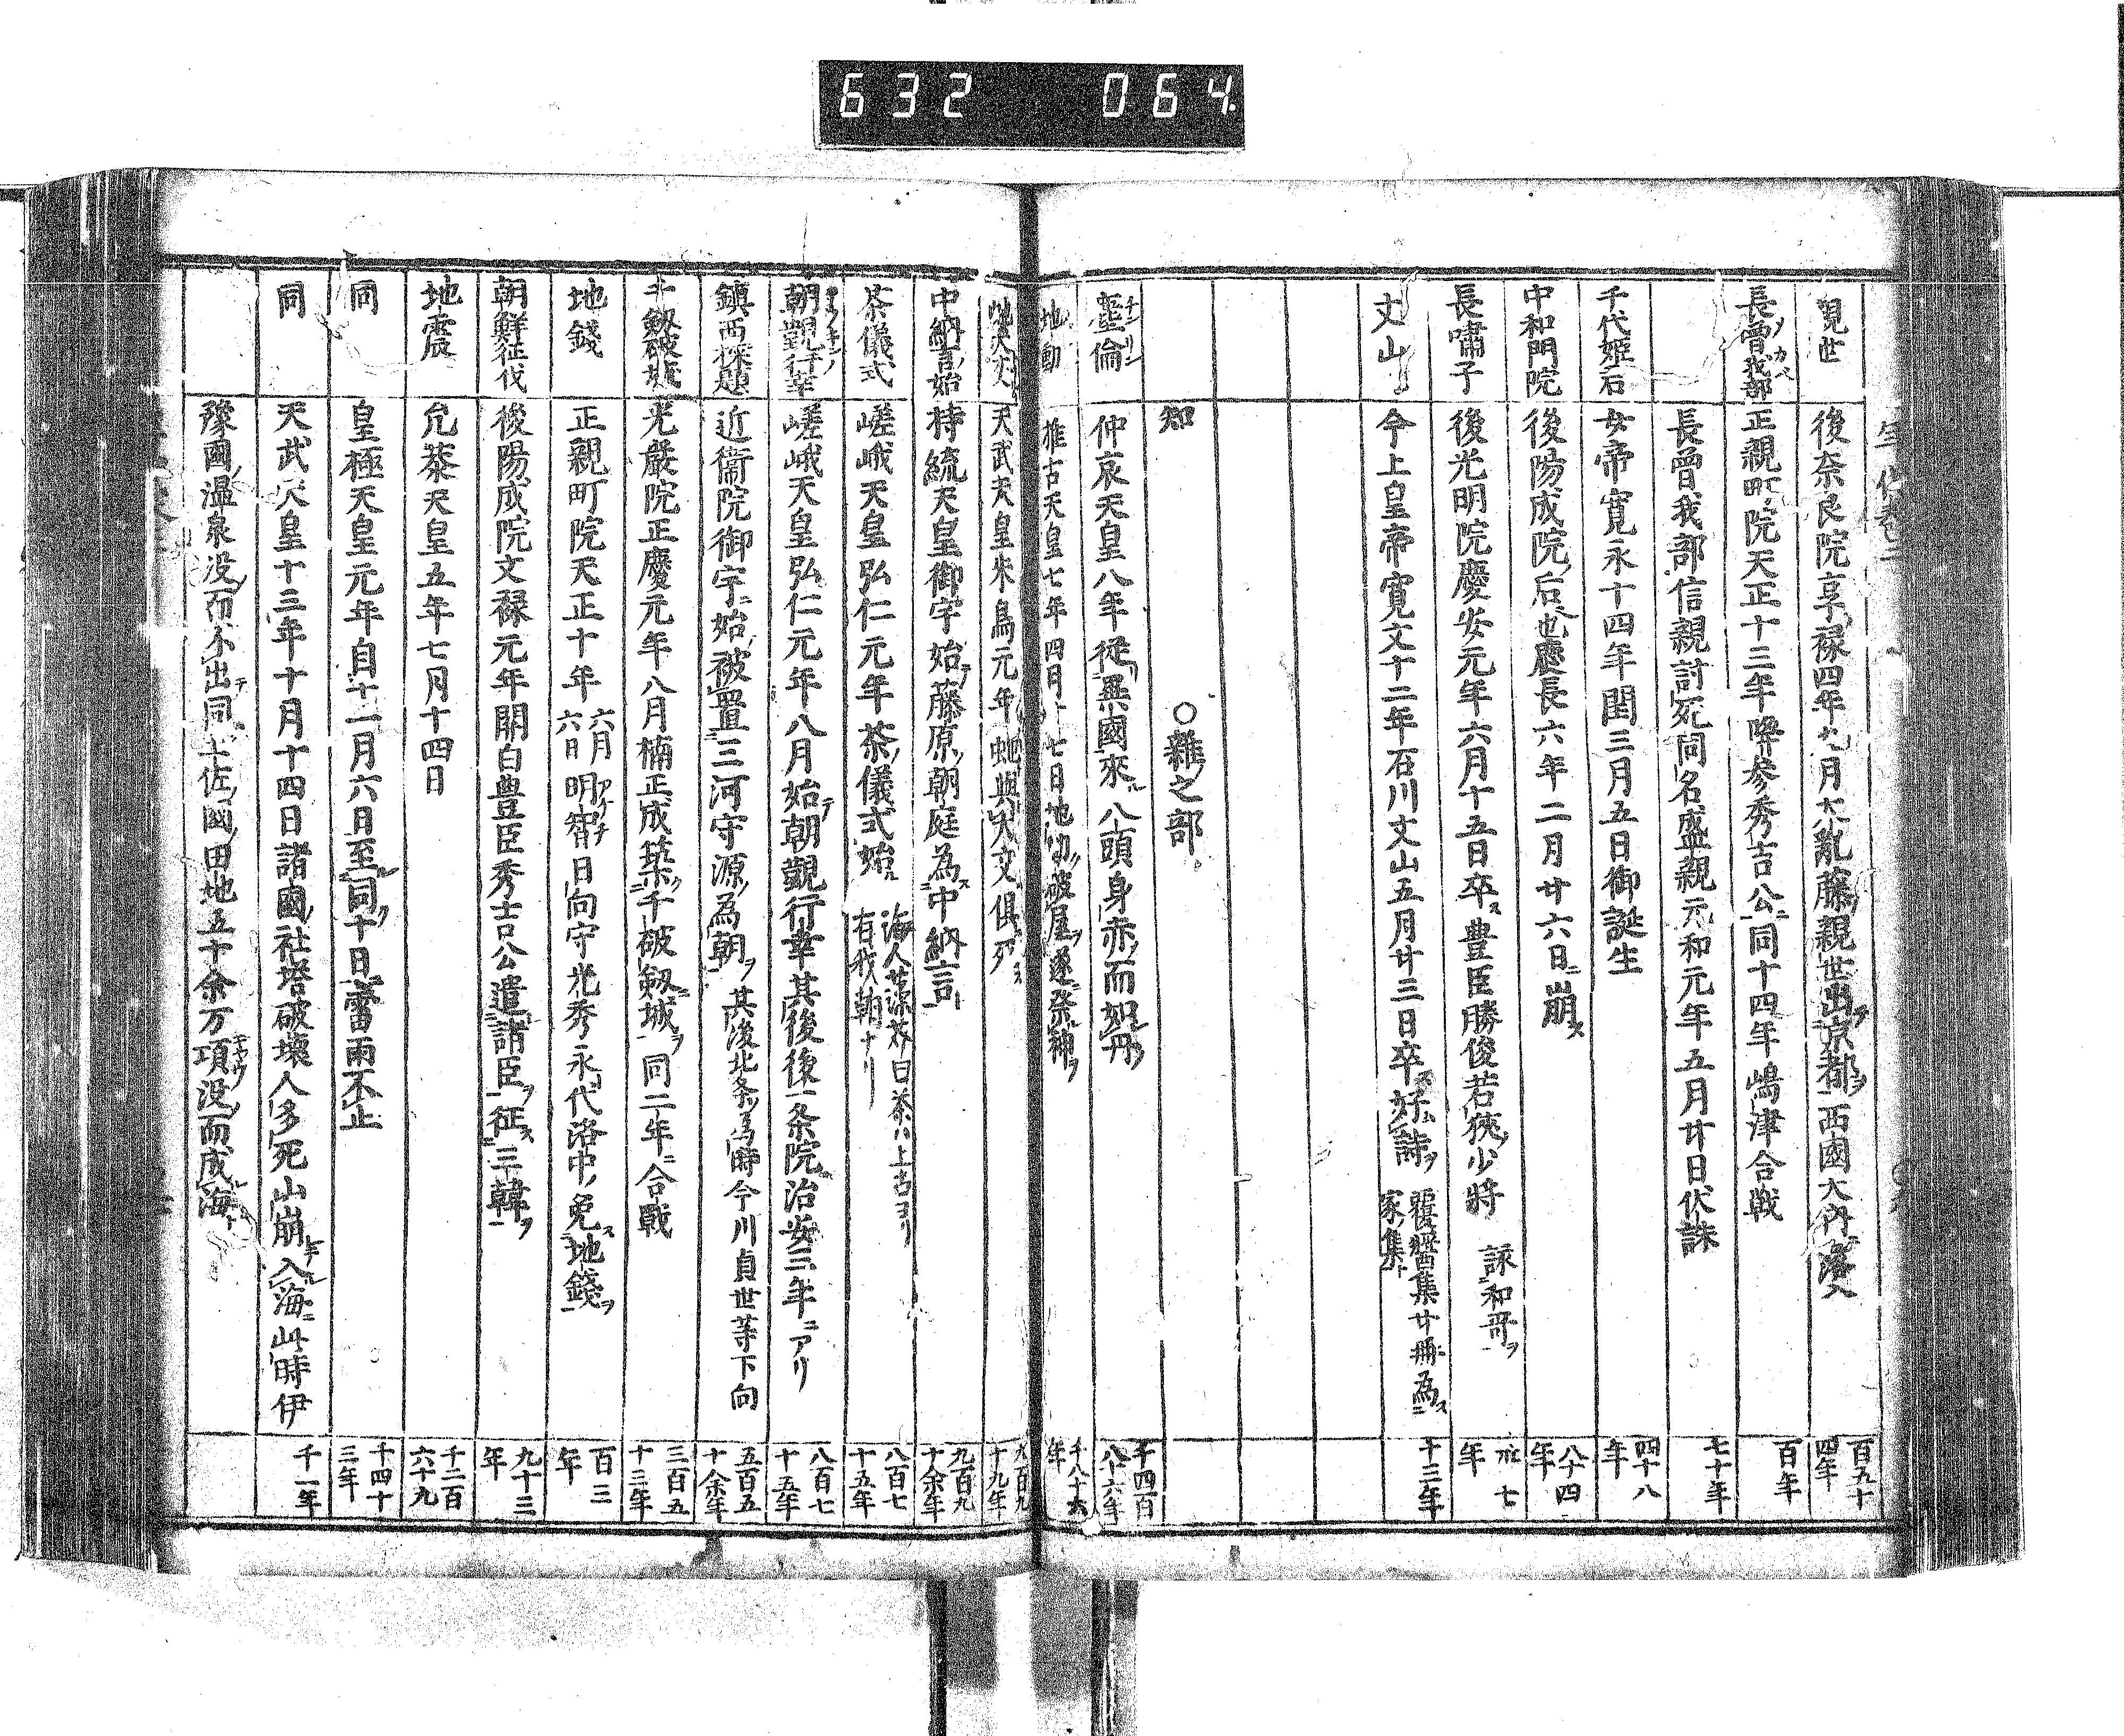 632 064
親世 後奈良院享禄四年九月大乱藤親世出テ京都ヲ西國大内ニ落入 百五十四年
長曽我部 正親町院天正十三年降参秀吉公ニ同十四年嶋津合戦 百年
長曽我部信親討死同名盛親元和元年五月廿日伏誅 七十年
千代姫君 女帝寛永十四年閏三月五日御誕生 四十八年
中和門院 後陽成院ノ后也慶長六年二月廿六日ニ崩ス 八十四年
長嘯子 後光明院慶安元年六月十五日卒ス豊臣勝俊若狹ノ少將 詠和哥ヲ 七年
丈山 今上皇帝寛文十二年石川丈山五月廿三日卒ス好ム詩ヲ 覆醤集廿冊為ス家ノ集ト 十三年
知 ○雜之部
塵倫 チンリン 仲哀天皇八年從リ異國來ル八頭身赤ノ而如シ丹ノ 千四百八十六年
地動 推古天皇七年四月廿七日地動ノ破屋ヲ遂ニ祭ル神ヲ 千八十六年
天武天皇朱鳥元年蛇與犬交俱ニ死ス 九百九十九年
中納言始 持統天皇御宇始テ藤原ノ朝庭為ス中納言ニ 九百九十余年
茶儀式 嵯峨天皇弘仁元年茶ノ儀式始ル 海人藻芥曰茶ハ上古ヨリ有我朝ナリ 八百七十五年
朝覲行幸 嵯峨天皇弘仁元年八月始テ朝覲行幸其後後一条院治安三年ニアリ 八百七十五年
鎮西探題 近衞院御宇ニ始テ被置三河守源ノ為朝ヲ其後北条ノ為時今川貞世等下向 五百五十余年
千劔破城 光嚴院正慶元年八月楠正成築ク千破劔城ヲ同二年ニ合戰 三百五十三年
地錢 正親町院天正十年六月六日明智日向守光秀永代洛中ノ免ス地錢ヲ 百三年
朝鮮征伐 後陽成院文禄元年關白豊臣秀吉公遣諸臣ヲ征ス三韓ヲ 九十三年
地震 允恭天皇五年七月十四日 千二百六十九
同 皇極天皇元年自十一月六日至ル同ク十日ニ雷雨不止 千四十三年
同 天武天皇十三年十月十四日諸國ノ社塔破壊人多死山崩入海ニ此時伊 千一年
豫國ノ温泉没ノ而不出テ同土佐ノ國ノ田地五十余万項没ノ而成ル海ト